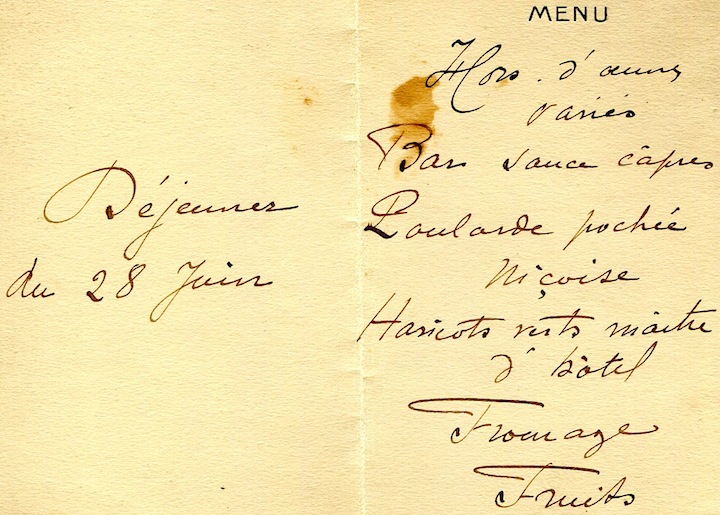 Déjeuner
du 28 Juin
MENU
Hors. d'œuvres
variés
Bar sauce câpres
Poularde pochée
Niçoise
Haricots verts maître
d'hôtel
Fromage
Fruits